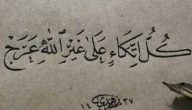 كُلُّ اتِّكَاءٍ عَلَىٰ غَيْرِ اللَّهِ عَرَجْ